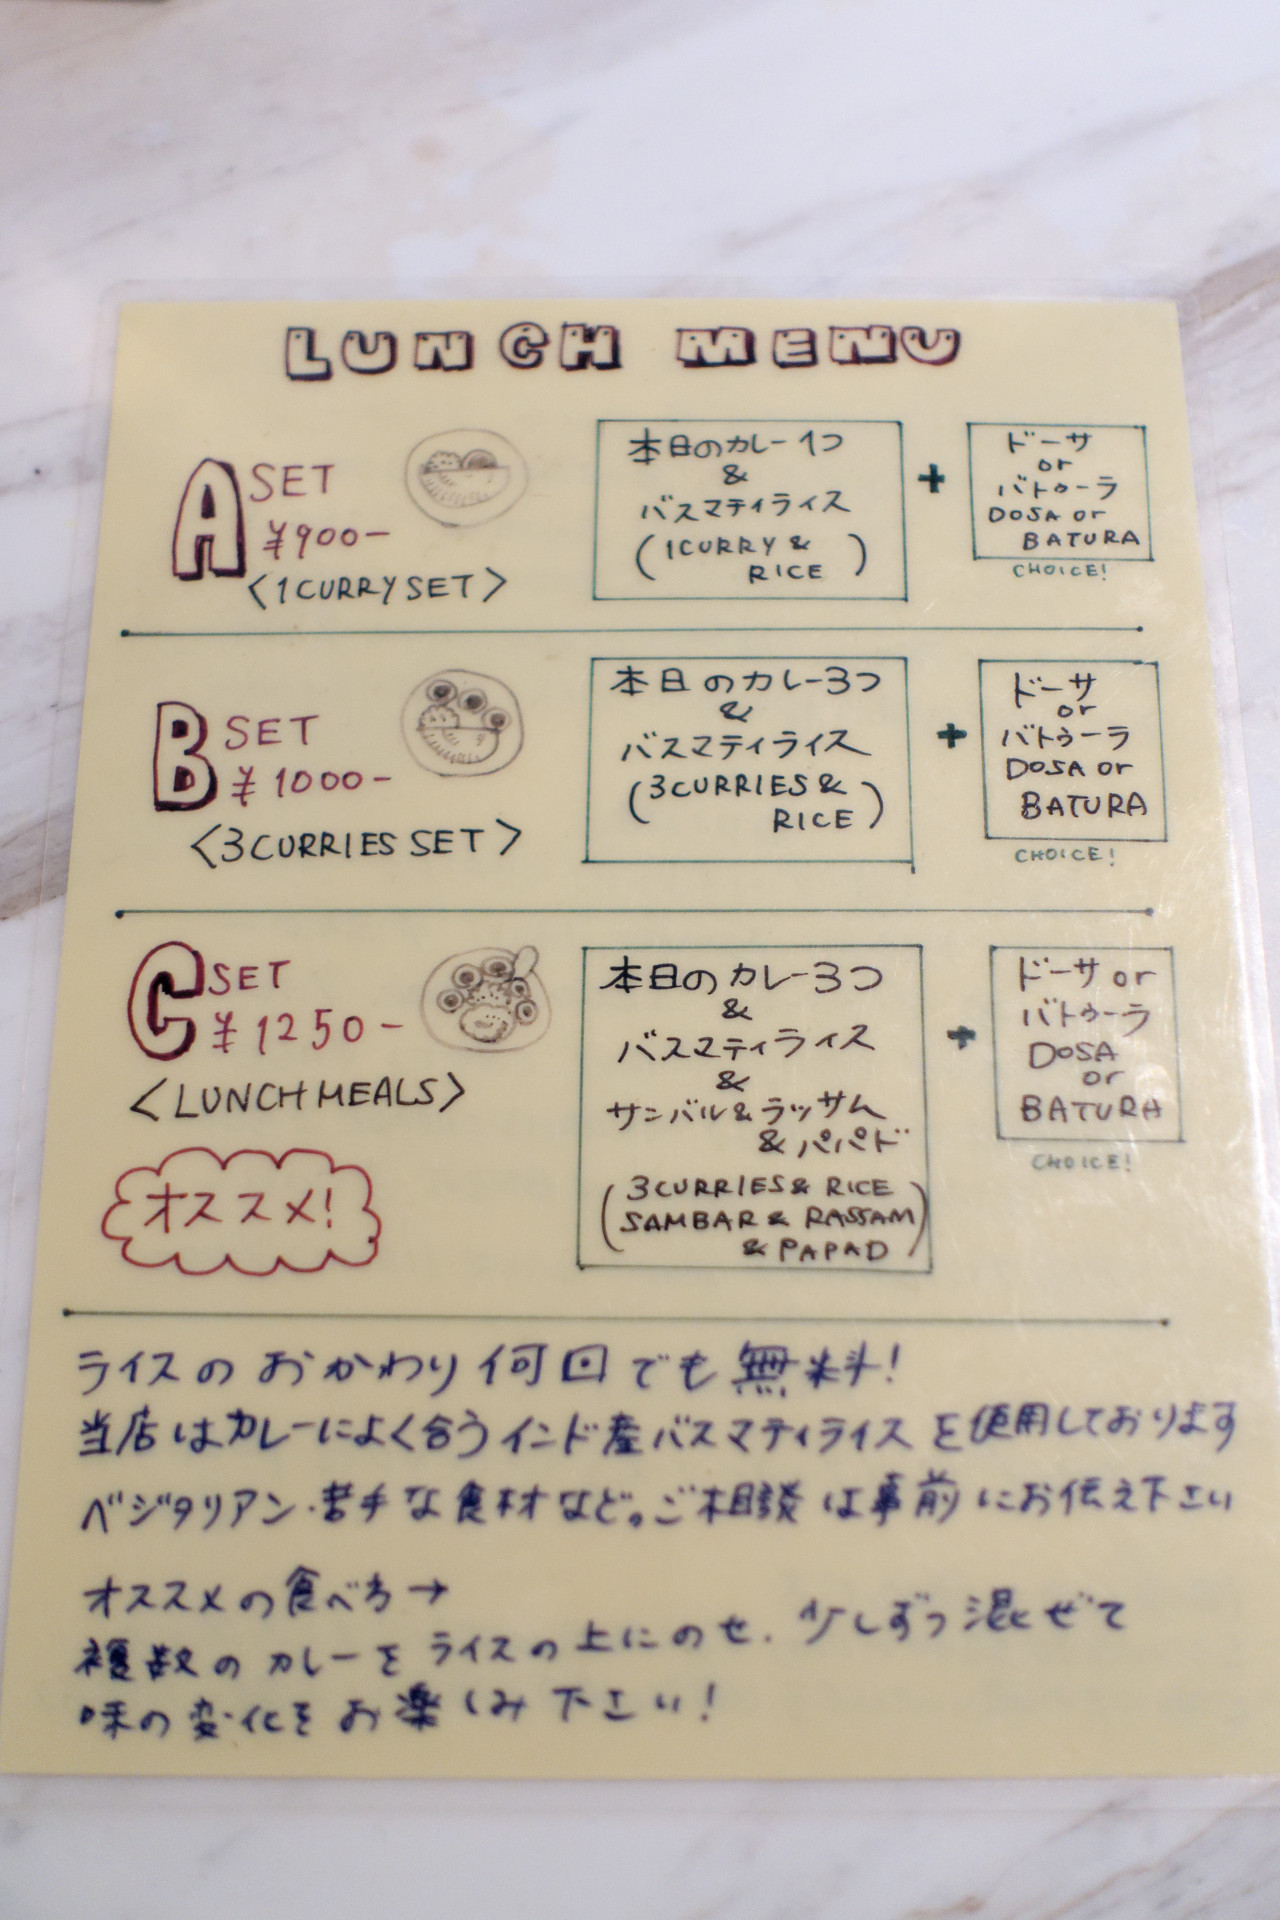 LUNCH MENU
A SET
¥900-
<1CURRY SET>
本日のカレー1つ
&
バスマティライス
(1CURRY &
RICE)
+
ドーサ
or
バトゥーラ
DOSA or
BATURA
CHOICE!
B SET
¥1000-
<3CURRIES SET>
本日のカレー3つ
&
バスマティライス
(3CURRIES &
RICE)
+
ドーサ
or
バトゥーラ
DOSA or
BATURA
CHOICE!
C SET
¥1250-
<LUNCH MEALS>
オススメ!
本日のカレー3つ
&
バスマティライス
&
サンバル&ラッサム
&パパド
(3CURRIES & RICE
SAMBAR & RASSAM
& PAPAD)
+
ドーサ or
バトゥーラ
DOSA
or
BATURA
CHOICE!
ライスのおかわり何回でも無料!
当店はカレーによく合うインド産バスマティライスを使用しております
ベジタリアン・苦手な食材など。ご相談は事前にお伝え下さい
オススメの食べ方→
複数のカレーをライスの上にのせ、少しずつ混ぜて
味の変化をお楽しみ下さい!